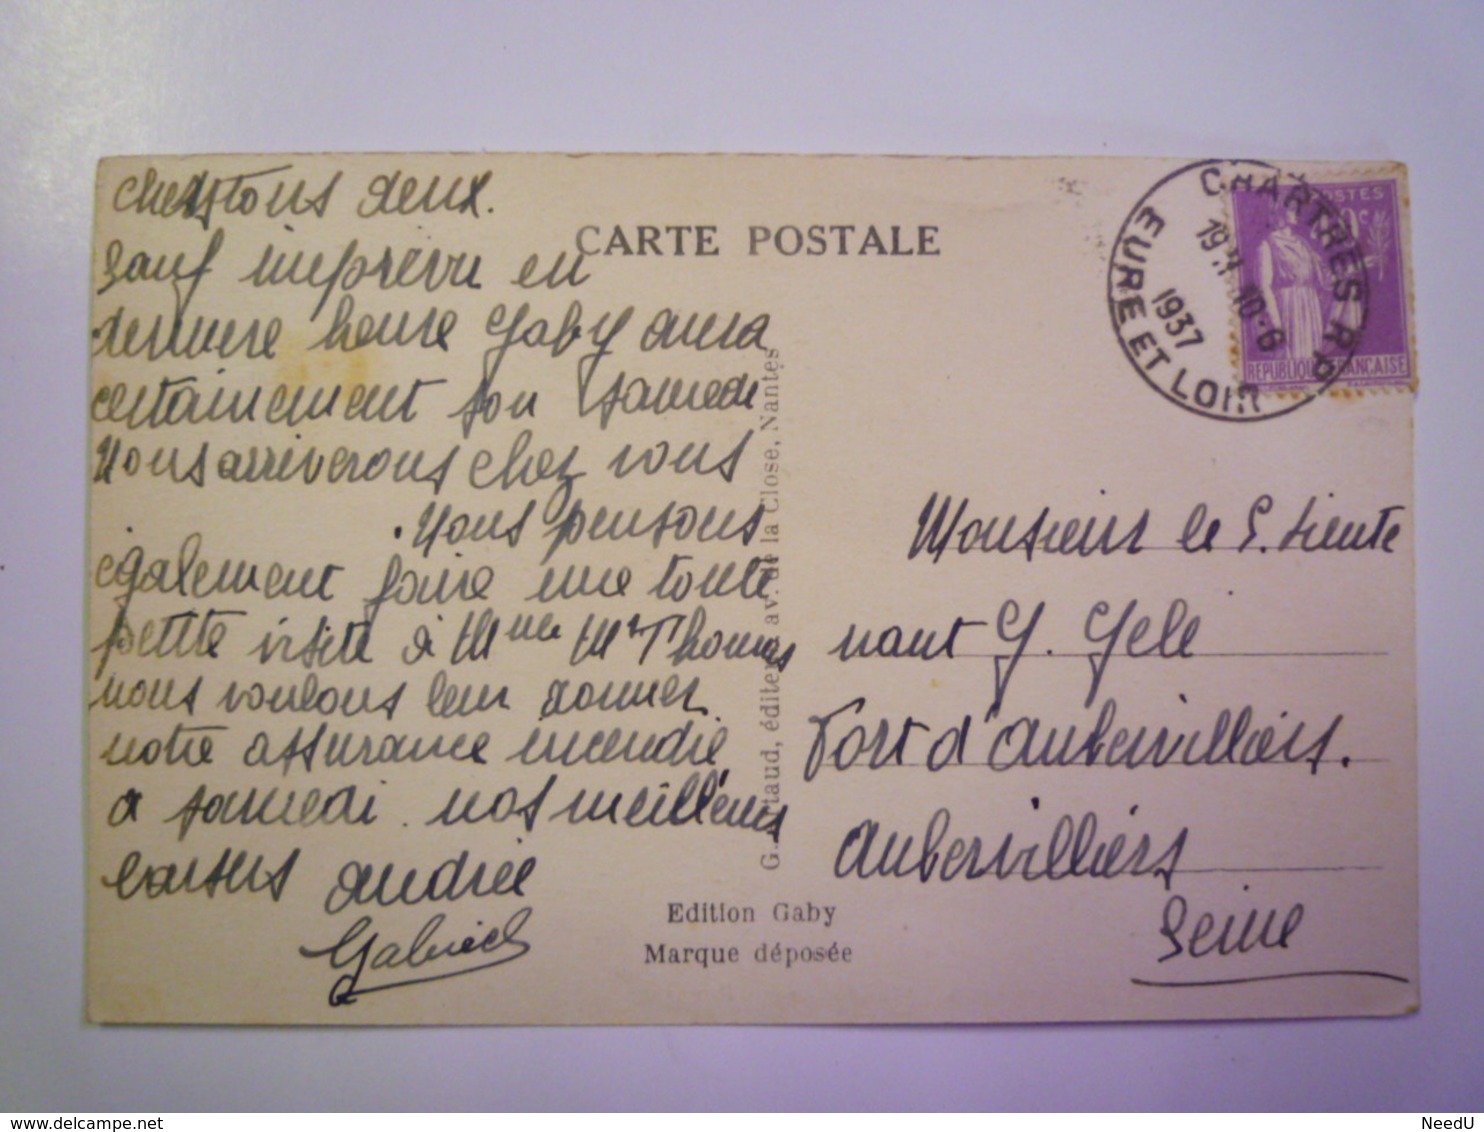 Chers tous deux.
Sauf imprévu en
dernière heure Gaby aura
certainement son samedi
Nous arriverons chez vous
. Nous pensons
également faire une toute
petite visite à Mme Mr Thomas
nous voulons leur donner
notre assurance incendie
a samedi nos meilleurs
baisers Andrée
Gabriel
CARTE POSTALE
G. Artaud, éditeur, av. de la Close, Nantes
Edition Gaby
Marque déposée
CHARTRES R.P.
19 10-6
1937
EURE ET LOIR
POSTES
REPUBLIQUE FRANÇAISE
Monsieur le S. Lieute
nant G. Gele
Fort d'Aubervilliers.
Aubervilliers
Seine
NeedU